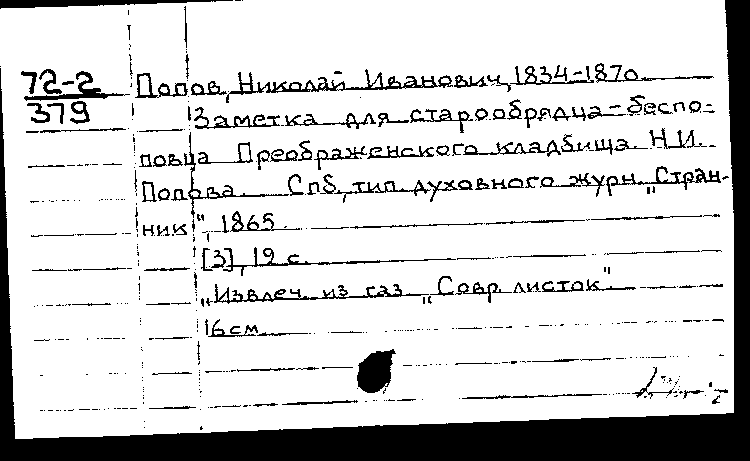 72-2
379
Попов, Николай Иванович, 1834-1870.
Заметка для старообрядца-беспо-
повца Преображенского кладбища. Н.И.
Попова. Спб., тип. духовного журн. „Стран-
ник", 1865.
[3], 19 с.
„Извлеч. из газ. „Совр. листок".
16 см.